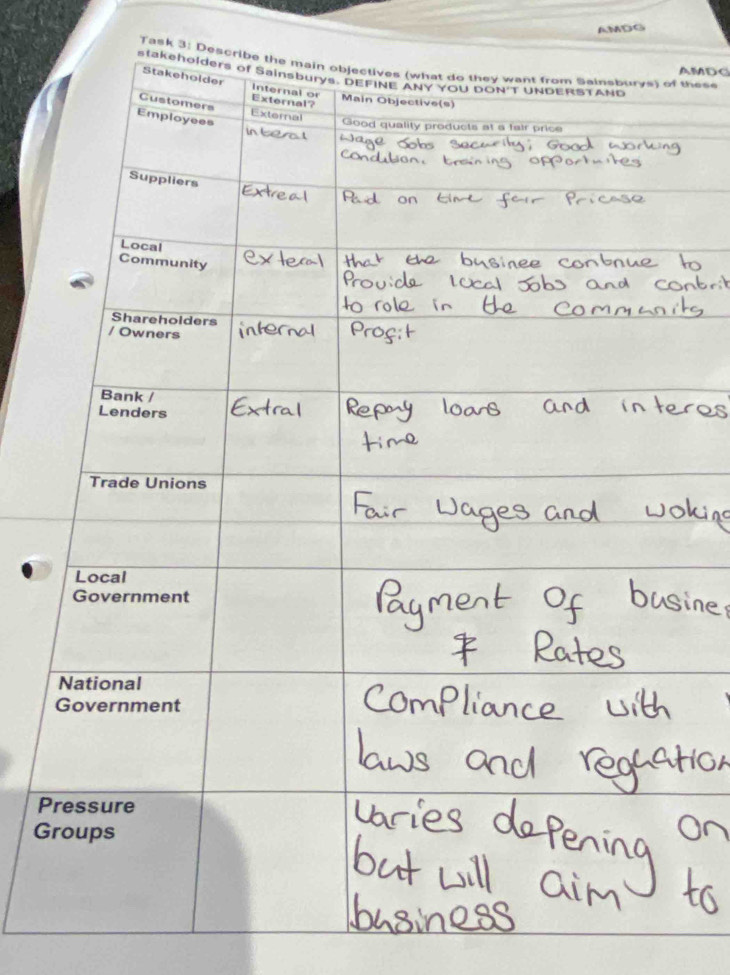 AMDG
AMDG
Task 3: Describe the main objectives (what do they want from Sainsburys) of these
stakeholders of Sainsburys. DEFINE ANY YOU DON'T UNDERSTAND
Stakeholder Internal or External? Main Objective(s)
Customers External Good quality products at a fair price
Employees interal Wage Jobs security; Good working
condition, training opportunites
Suppliers Extreal Paid on time fair Pricase
Local
Community exteral that the businee contnue to
Provide local Jobs and contrit
to role in the community
Shareholders
/ Owners internal Profit
Bank /
Lenders Extral Repay loans and interes
time
Trade Unions
Fair Wages and woking
Local
Government Payment Of busines
Rates
National
Government Compliance with
laws and reguation
Pressure
Groups varies depening on
but will aim to
business